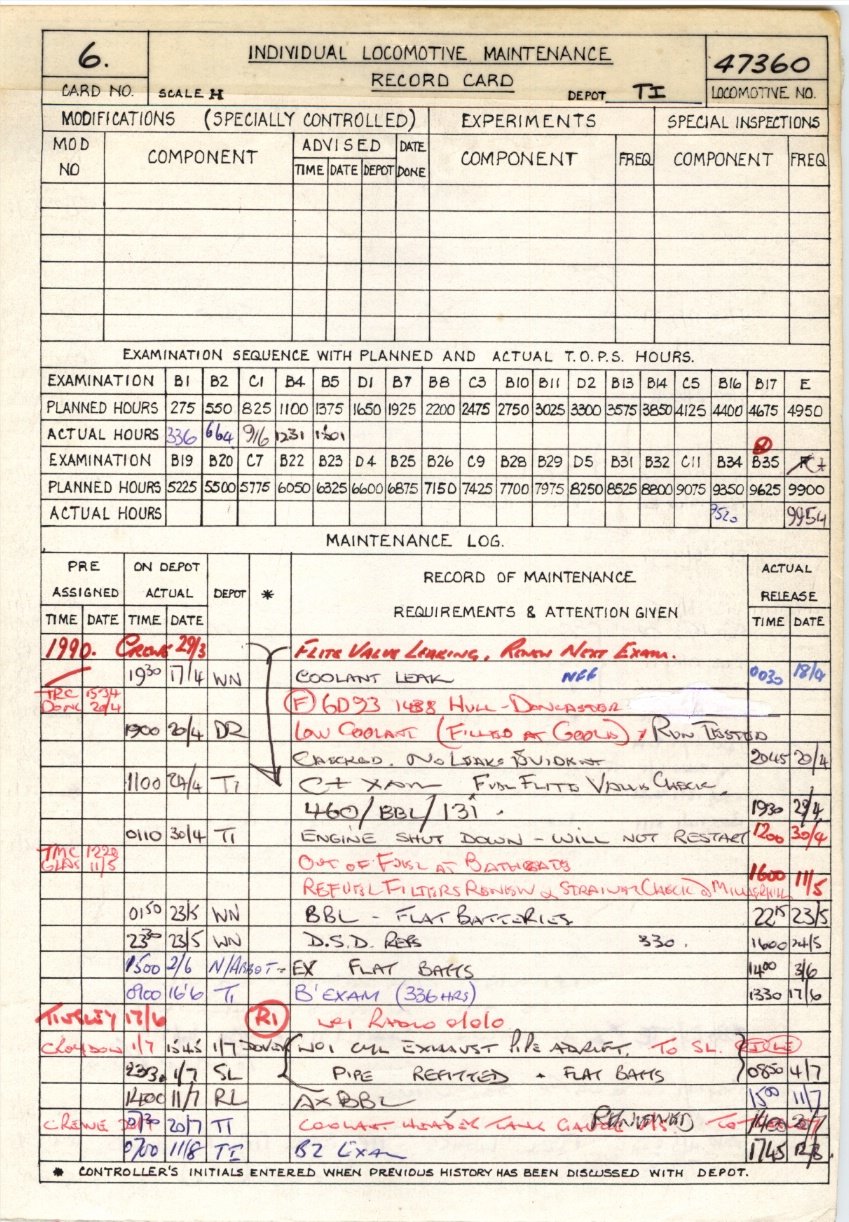 6. INDIVIDUAL LOCOMOTIVE MAINTENANCE 47360
RECORD CARD
CARD NO. SCALE H DEPOT TI LOCOMOTIVE NO.
MODIFICATIONS (SPECIALLY CONTROLLED) EXPERIMENTS SPECIAL INSPECTIONS
MOD NO COMPONENT ADVISED DATE DONE COMPONENT FREQ COMPONENT FREQ
TIME DATE DEPOT
EXAMINATION SEQUENCE WITH PLANNED AND ACTUAL T.O.P.S. HOURS.
EXAMINATION B1 B2 C1 B4 B5 D1 B7 B8 C3 B10 B11 D2 B13 B14 C5 B16 B17 E
PLANNED HOURS 275 550 825 1100 1375 1650 1925 2200 2475 2750 3025 3300 3575 3850 4125 4400 4675 4950
ACTUAL HOURS 336 664 916 1231 1501
EXAMINATION B19 B20 C7 B22 B23 D4 B25 B26 C9 B28 B29 D5 B31 B32 C11 B34 B35
PLANNED HOURS 5225 5500 5775 6050 6325 6600 6875 7150 7425 7700 7975 8250 8525 8800 9075 9350 9625 9900
ACTUAL HOURS 9520 9954
MAINTENANCE LOG.
PRE ASSIGNED ON DEPOT ACTUAL DEPOT * RECORD OF MAINTENANCE REQUIREMENTS & ATTENTION GIVEN ACTUAL RELEASE
TIME DATE TIME DATE TIME DATE
1990. CREWE 29/3 FLITE VALVE LEAKING, RENEW NEXT EXAM.
1930 17/4 WN COOLANT LEAK NFF 0030 18/4
TRC 1534 DONC 20/4 (F) 6D93 1438 HULL-DONCASTER
1900 20/4 DR LOW COOLANT (FILLED AT GOOLE) RUN TESTED
CHECKED. NO LEAKS EVIDENT 2045 20/4
1100 24/4 TI C+ XAM FUEL FLITE VALVE CHECK.
460/BBL/131. 1930 29/4
0110 30/4 TI ENGINE SHUT DOWN - WILL NOT RESTART 1200 30/4
TMC 1220 GLAS 11/5 OUT OF FUEL AT BATHGATE
REFUEL FILTERS RENEW & STRAINER CHECK @ MILLERHILL 1600 11/5
0150 23/5 WN BBL - FLAT BATTERIES 2215 23/5
2330 23/5 WN D.S.D. REPS 330. 1600 24/5
1500 2/6 N/ABBOT - EX FLAT BATTS 1400 3/6
0900 16/6 TI B' EXAM (336 HRS) 1330 17/6
TINSLEY 17/6 R1 NO1 RADIO 0/0/0
CROYDON 1/7 1545 1/7 DOVER NO1 CYL EXHAUST PIPE ADRIFT. TO SL.
1/7 SL PIPE REFITTED + FLAT BATTS 0850 4/7
1400 11/7 RL AX BBL 1500 11/7
CREWE 20/7 TI COOLANT HEADER TANK GAUGE RENEWED
0700 11/8 TI B2 EXAM 1745 12/8
* CONTROLLER'S INITIALS ENTERED WHEN PREVIOUS HISTORY HAS BEEN DISCUSSED WITH DEPOT.